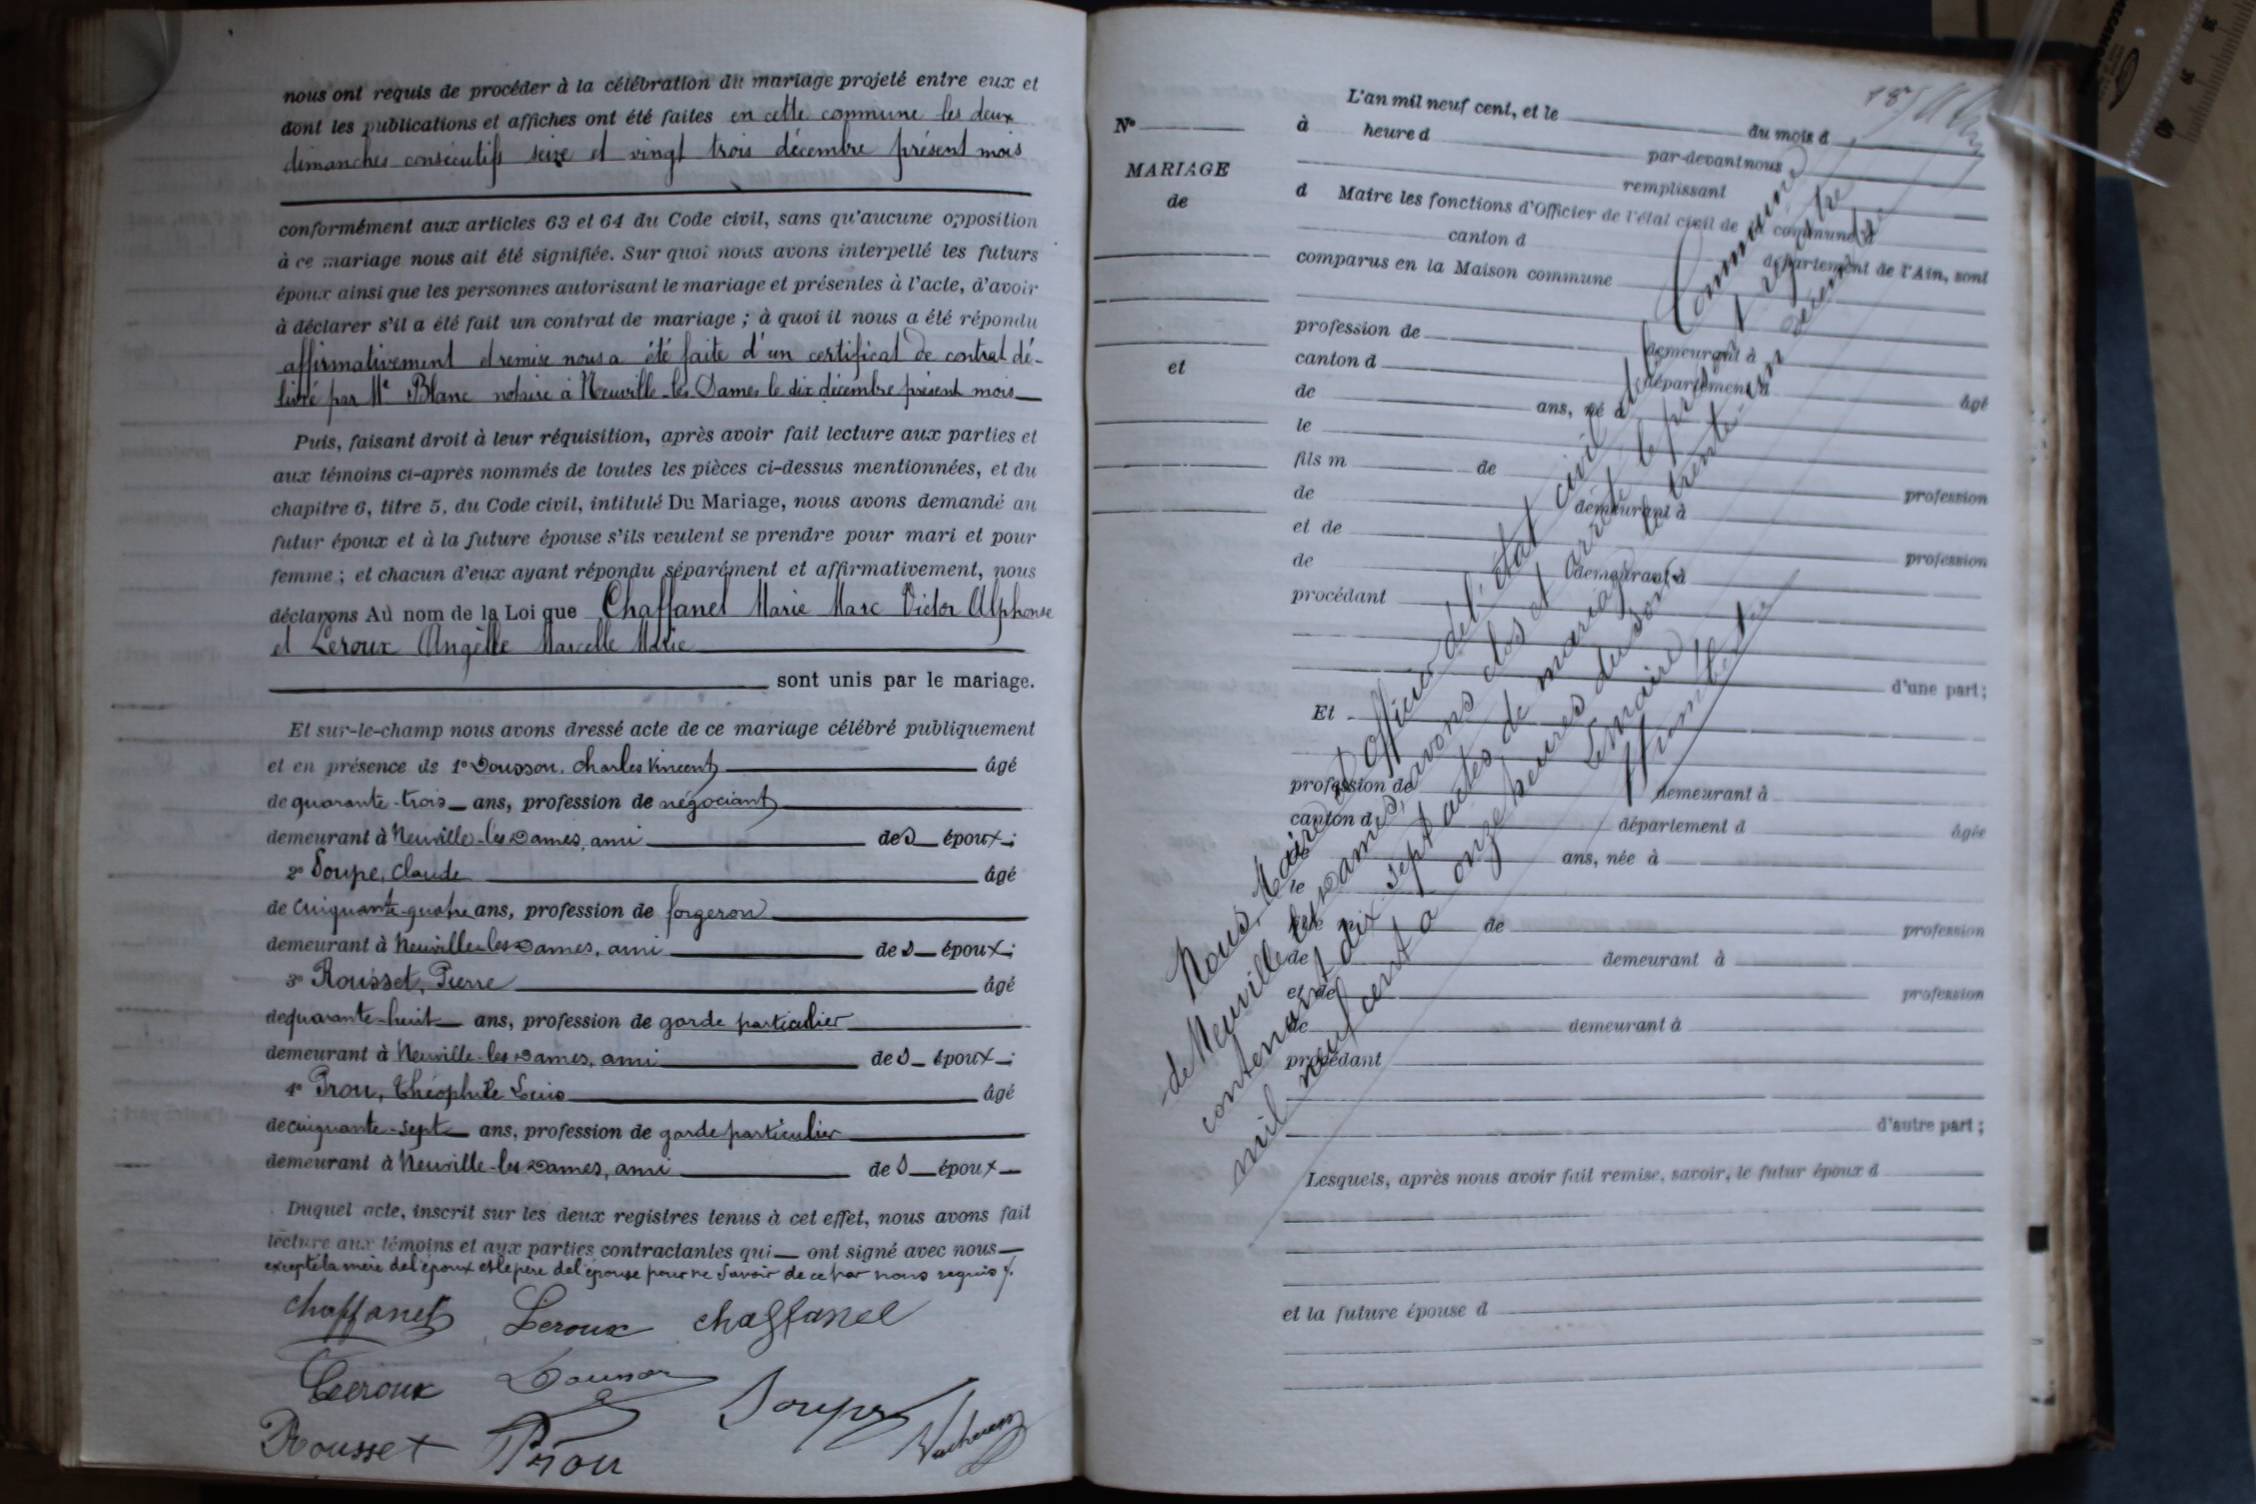 nous ont requis de procéder à la célébration du mariage projeté entre eux et
dont les publications et affiches ont été faites en cette commune les deux
dimanches consécutifs seize et vingt trois décembre présent mois
conformément aux articles 63 et 64 du Code civil, sans qu'aucune opposition
à ce mariage nous ait été signifiée. Sur quoi nous avons interpellé les futurs
époux ainsi que les personnes autorisant le mariage et présentes à l'acte, d'avoir
à déclarer s'il a été fait un contrat de mariage ; à quoi il nous a été répondu
affirmativement et remise nous a été faite d'un certificat de contrat dé-
livré par Me Blanc notaire à Neuville-les-Dames le dix décembre présent mois
Puis, faisant droit à leur réquisition, après avoir fait lecture aux parties et
aux témoins ci-après nommés de toutes les pièces ci-dessus mentionnées, et du
chapitre 6, titre 5, du Code civil, intitulé Du Mariage, nous avons demandé au
futur époux et à la future épouse s'ils veulent se prendre pour mari et pour
femme ; et chacun d'eux ayant répondu séparément et affirmativement, nous
déclarons Au nom de la Loi que Chaffanel Marie Marc Victor Alphonse
et Leroux Angèle Marcelle Marie
sont unis par le mariage.
Et sur-le-champ nous avons dressé acte de ce mariage célébré publiquement
et en présence de 1º Dousson, Charles Vincent âgé
de quarante-trois ans, profession de négociant
demeurant à Neuville-les-Dames, ami des époux ;
2º Soupe, Claude âgé
de cinquante-quatre ans, profession de forgeron
demeurant à Neuville-les-Dames, ami des époux ;
3º Rousset, Pierre âgé
de quarante-huit ans, profession de garde particulier
demeurant à Neuville-les-Dames, ami des époux ;
4º Prou, Théophile âgé
de cinquante-sept ans, profession de garde particulier
demeurant à Neuville-les-Dames, ami des époux
Duquel acte, inscrit sur les deux registres tenus à cet effet, nous avons fait
lecture aux témoins et aux parties contractantes qui ont signé avec nous
excepté la mère de l'époux et le père de l'épouse pour ne savoir de ce par nous requis
Chaffanel Leroux Chaffanel
Leroux Dousson Soupe
Rousset Prou
18
L'an mil neuf cent, et le du mois d
Nº à heure d par-devant nous
remplissant
MARIAGE
de
d Maire les fonctions d'Officier de l'état civil de commune d
canton d département de l'Ain, sont
comparus en la Maison commune
profession de demeurant à
et
canton d département d âgé
de ans, né à
le
fils m de profession
de demeurant à
et de profession
de demeurant à
procédant
d'une part ;
Et
profession de demeurant à
canton d département d âgée
ans, née à
le
de profession
de demeurant à
et de profession
de demeurant à
procédant
d'autre part ;
Lesquels, après nous avoir fait remise, savoir, le futur époux d
et la future épouse d
Nous, Maire et Officier de l'état civil de la Commune
de Neuville les Dames, avons clos et arrêté le présent registre
contenant dix-sept actes de mariage le trente un décembre
mil neuf cent à onze heures du soir
Le maire